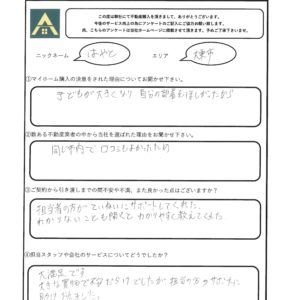 この度は弊社にて不動産購入を頂きまして、ありがとうございます。
今後のサービス向上の為にアンケートのご記入にご協力お願い致します。
尚、こちらのアンケートは会社ホームページに掲載させて頂きます。予めご了承下さいませ。
ニックネーム はやと エリア 大東市
①マイホーム購入の決意をされた理由についてお聞かせ下さい。
子どもが大きくなり 自分の部屋をほしがったから
②数ある不動産業者の中から当社を選ばれた理由をお聞かせ下さい。
同じ市内で 口コミもよかったから
③ご契約から引き渡しまでの間不安や不満、また良かった点はございますか？
担当者の方がていねいにサポートしてくれた。
わからないことも聞くと わかりやすく教えてくれた
④担当スタッフや会社のサービスについてどうでしたか？
大満足です
大きな買物で不安だらけでしたが 担当の方のサポートに
助けられました。